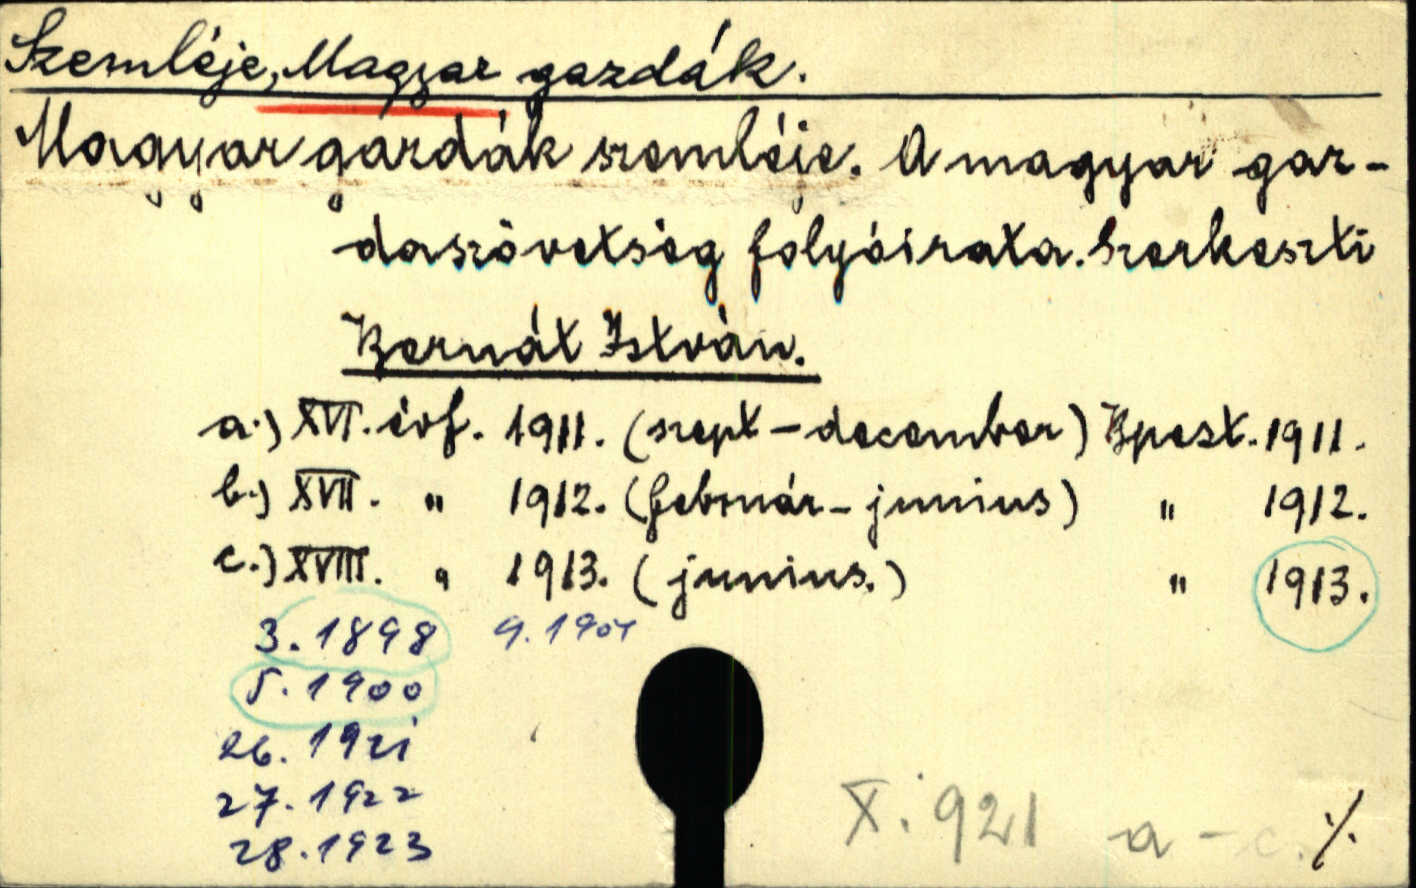 Szemléje, Magyar gazdák.
Magyar gazdák szemléje. A magyar gaz-
daszövetség folyóirata. Szerkeszti
Bernát István.
a.) XVI. évf. 1911. (szept – december) Bpest. 1911.
b.) XVII. " 1912. (február – junius) " 1912.
c.) XVIII. " 1913. (junius.) " 1913.
3. 1898 9. 1904
5. 1900
26. 1921
27. 1922
28. 1923
X. 921 a – c. ./.